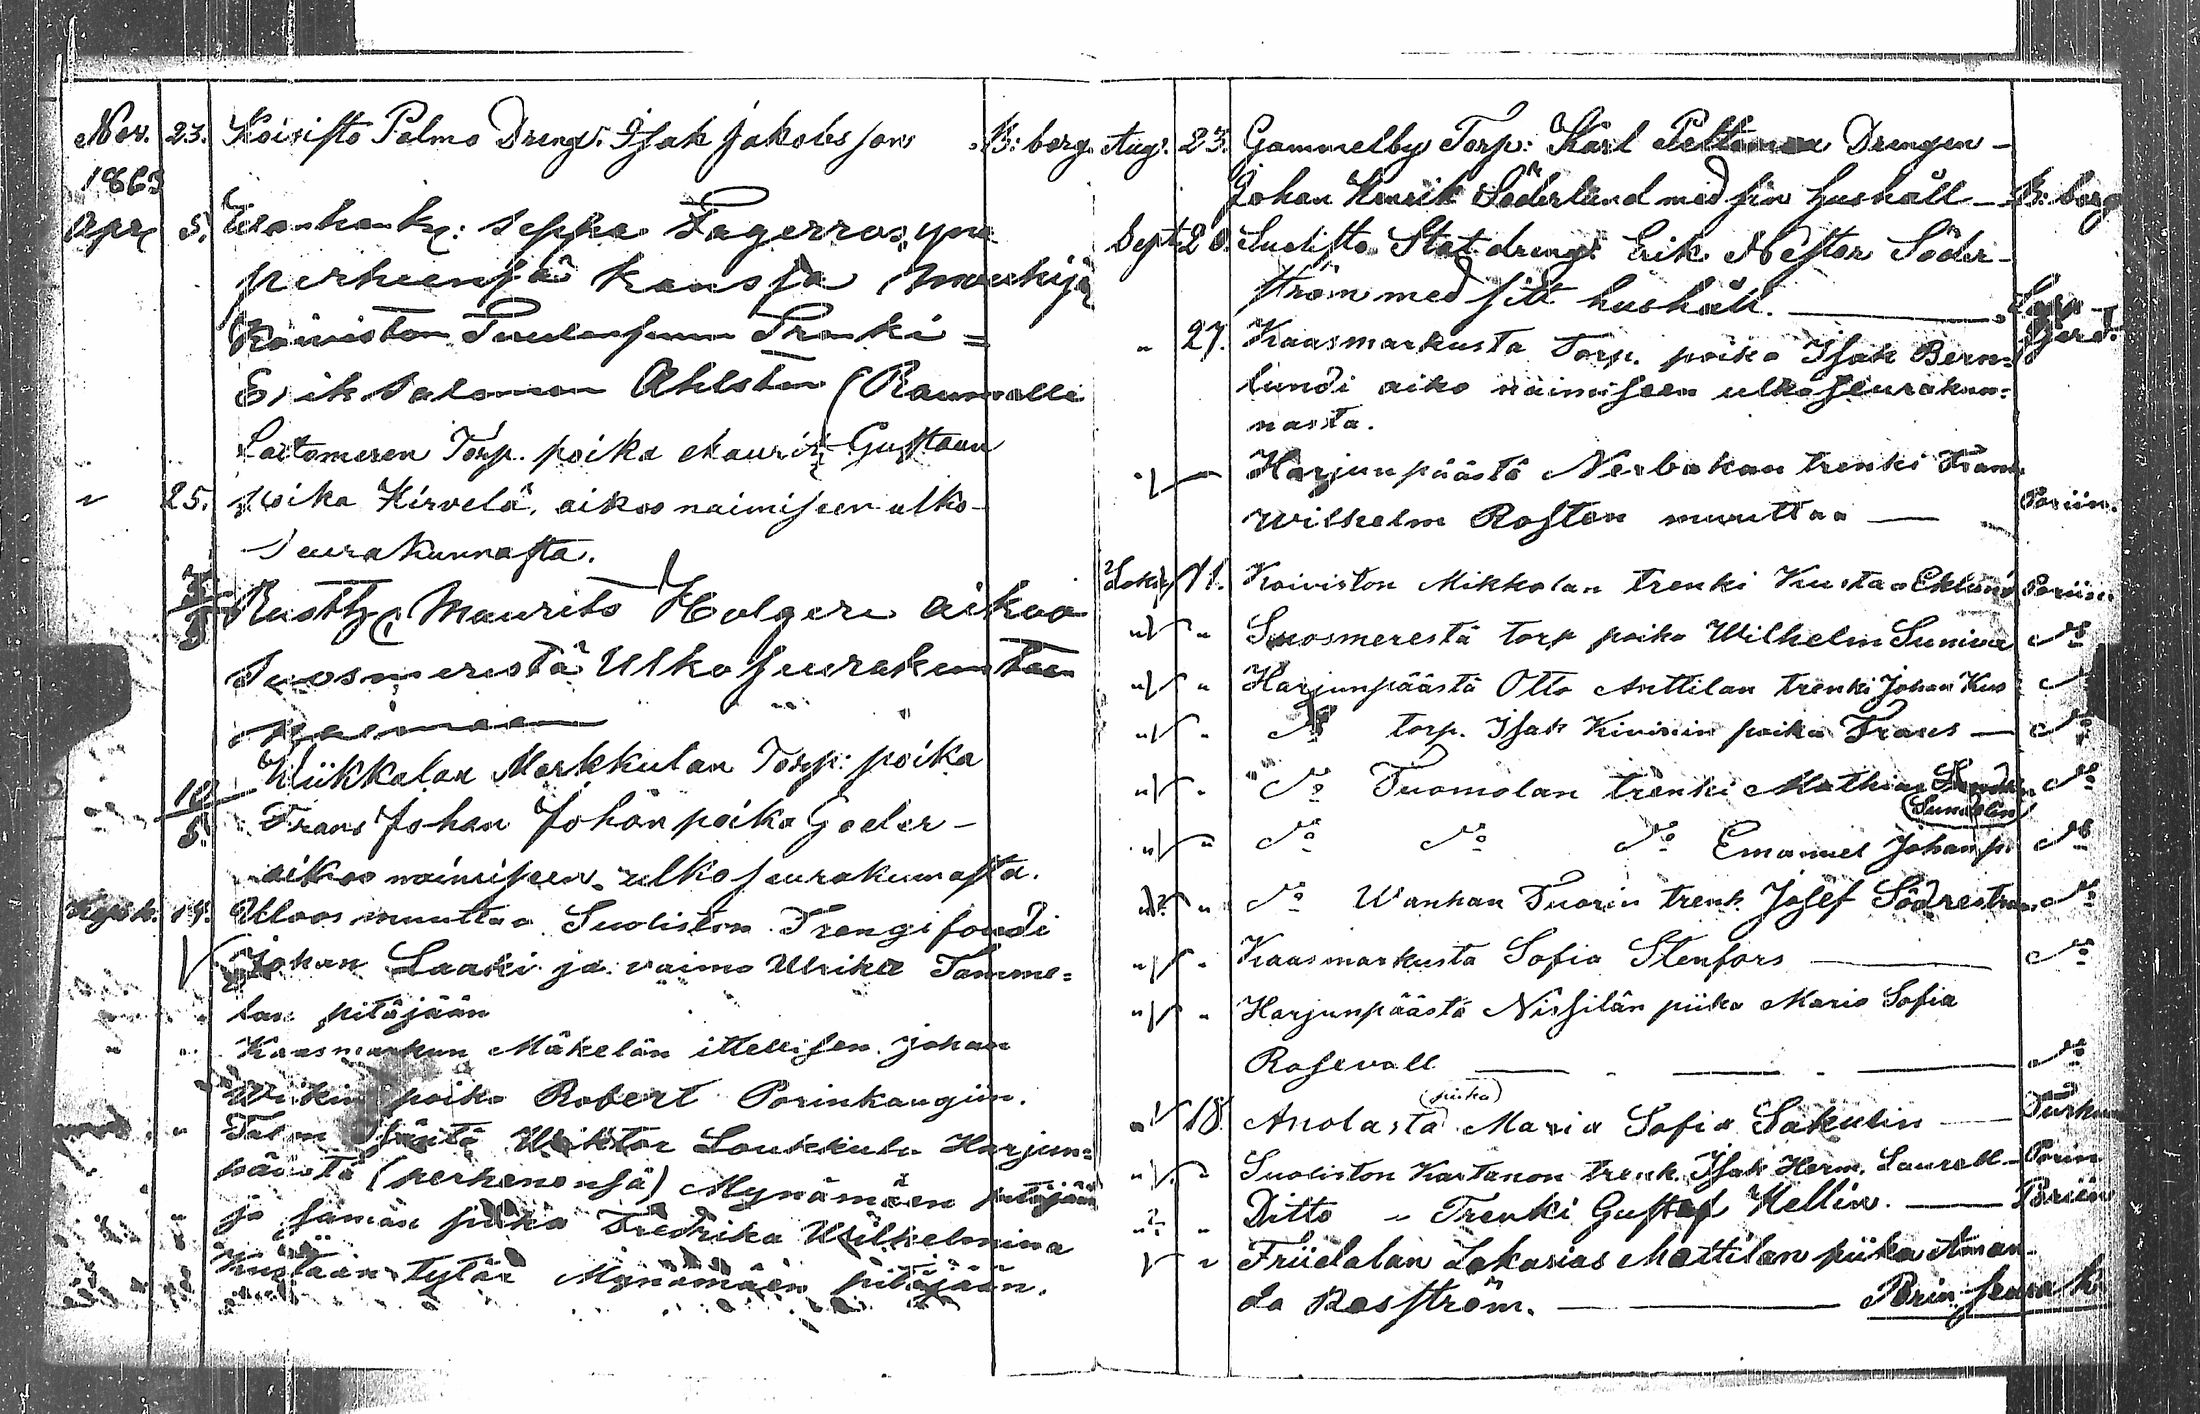 Nov. 23. Koivisto Palmo Dreng. Isak Jakobsson B:borg
1863
Apr. 5. Wanhank: seppä Fagerroos ynnä
perheensä kanssa
Koiviston Trenki
Erik Salomon Ahlsten (Raumalle
Lattomeren Torp. poika Maurits Gustaan
" 25. poika Kirvelä, aikoo naimiseen ulko-
seurakunnasta.
Maurits Holgeri aikoo
Suosmerestä Ulkoseurakuntaan
naimaan
Wiikkalan Markkulan Torp: poika
10/5 Frans Johan Johan poika Goder-
aikoo naimiseen ulkoseurakunnasta.
14. Uloos muuttaa Suoliston Trengi foudi
Johan Laaki ja vaimo Ulrika Tamme-
lan pitäjään
Kaasmarkun Mäkelän ittellisen Johan
poika Robert Porinkaugiin.
" Wiktor Loukkula Harjun-
päästä (perhenensä) Mynämäen pitäjään
" ja saman piika Fredrika Wilhelmina
tytär Mynämäen pitäjään.
Aug. 23. Gammelby Torp: Karl Drengen
Johan Henrik Söderlund med sin hushåll — B:borg
Sept. 20. Suolisto Stat dreng. Erik Nestor Söder-
ström med sitt hushåll.
" 27. Kaasmarkusta Torp. poika Isak Bern-
lundi aiko naimiseen ulkoseurakun-
nasta.
Harjunpäästä Nerbakan trenki Frans
Wilhelm Rosten muuttaa — Poriin.
11. Koiviston Mikkolan trenki Kustaa Eklund Poriin
" Suosmerestä torp poika Wilhelm do
" Harjunpäästä Otto Anttilan trenki Johan Kus do
" do torp. Isak Kivisiin poika Frans — do
" do Tuomolan trenki Mathias do
(Sundelin)
" do do do Emanuel Johan p. do
" do Wanhan Tuorin trenk. Josef do
" Kaasmarkusta Sofia Stenfors — do
" Harjunpäästä Nissilän piika Maria Sofia
Rosevall — do
(piika)
18 Anolasta Maria Sofia Sakulin — Turkuun
" Suoliston Kartanon trenk. Isak Herm. Laurell — Poriin
" Ditto " Trenki Gustaf Hellin. — Poriin
" Friidalan Sakarias Mattilan piika Aman-
da Rosström. — Porin seurak.